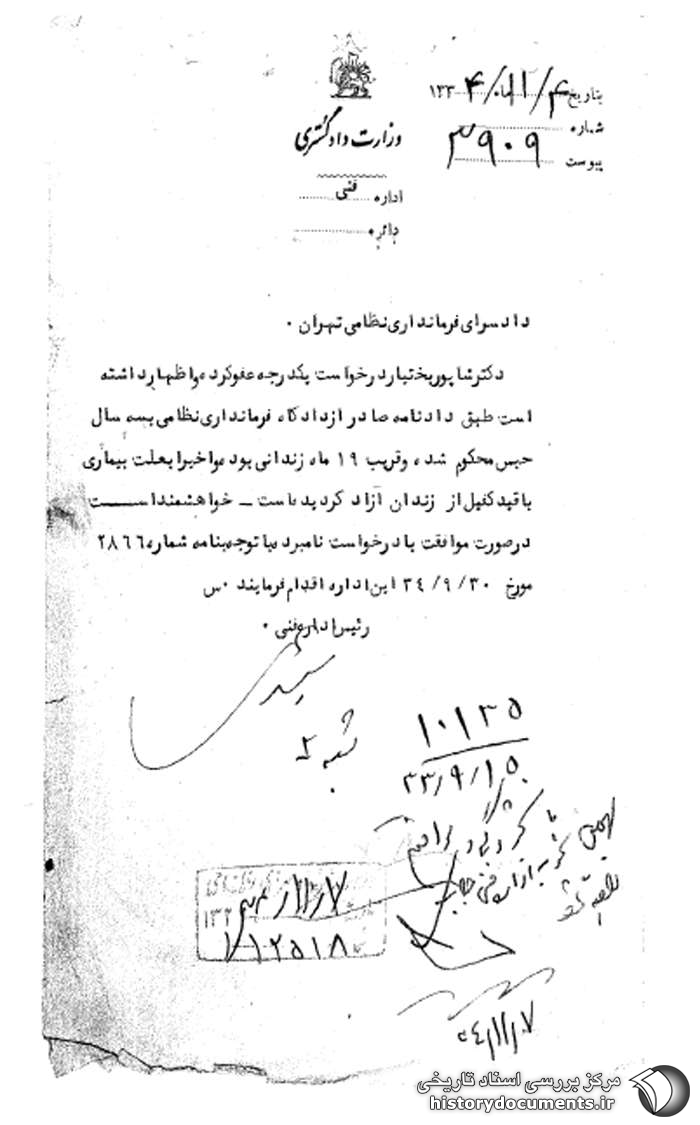 بتاریخ ۴ /۱۲ ماه/ ۱۳۳۴
شماره
۳۹۰۹
پیوست
وزارت دادگستری
اداره فنی
دائره
دادسرای فرمانداری نظامی تهران ۰
دکتر شاپور بختیار درخواست یکدرجه عفو کرده و اظهار داشته
است طبق دادنامه صادر از دادگاه فرمانداری نظامی بسه سال
حبس محکوم شده و قریب ۱۹ ماه زندانی بوده و اخیرا بعلت بیماری
با قید کفیل از زندان آزاد گردیده است ــ خواهشمند است
در صورت موافقت با درخواست نامبرده با توجه بنامه شماره ۲۸۶۶
مورخ ۳۰ /۹ /۳۴ این اداره اقدام فرمایند ۰ س
رئیس اداره فنی ۰
شعبه ۲
۱۰۱۳۵
۳۳/۹/۱۵
۱۳۳
۱۱۲۵۱۸
۳۴/۱۱/۰۷
مرکز بررسی اسناد تاریخی
historydocuments.ir